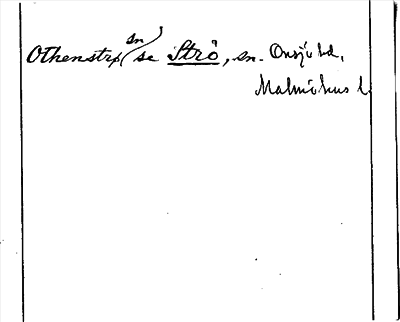 Othenstrø (sn) se Strö, sn. Onsjö hd,
Malmöhus l.